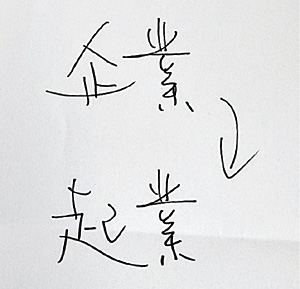 企業
起業